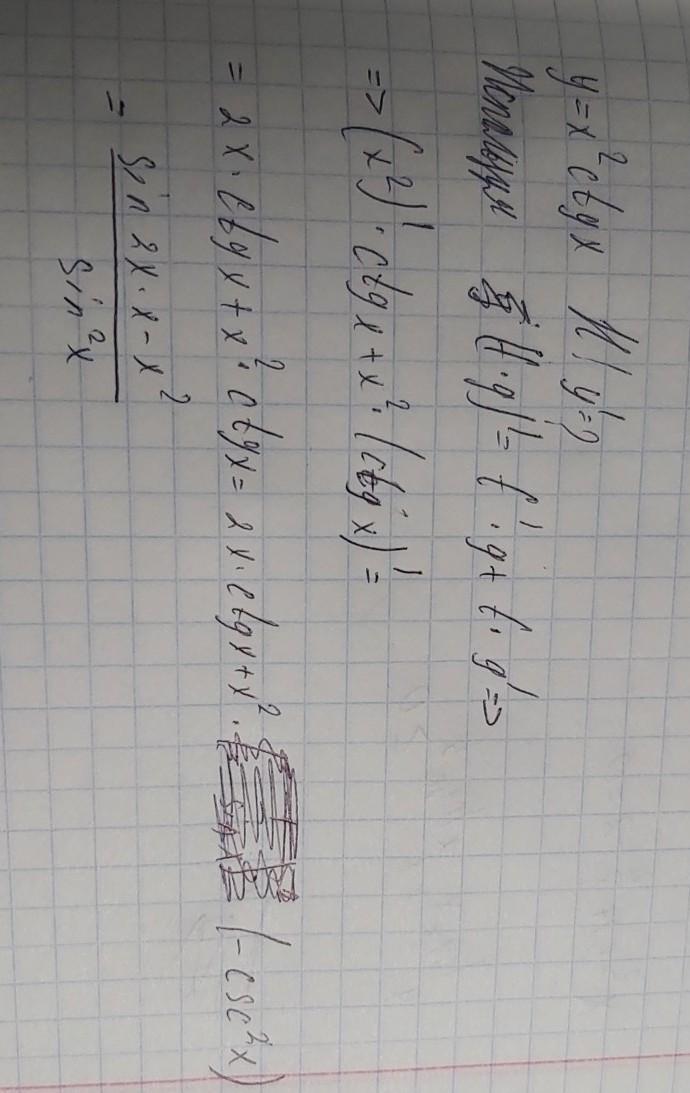 y = x² ctgx y' = ?
Используя (f · g)' = f' · g + f · g' =>
=> (x²)' · ctgx + x² · (ctg x)' =
= 2x · ctgx + x² · ctgx = 2x · ctgx + x² · (-csc²x)
= sin 2x · x - x²
sin²x